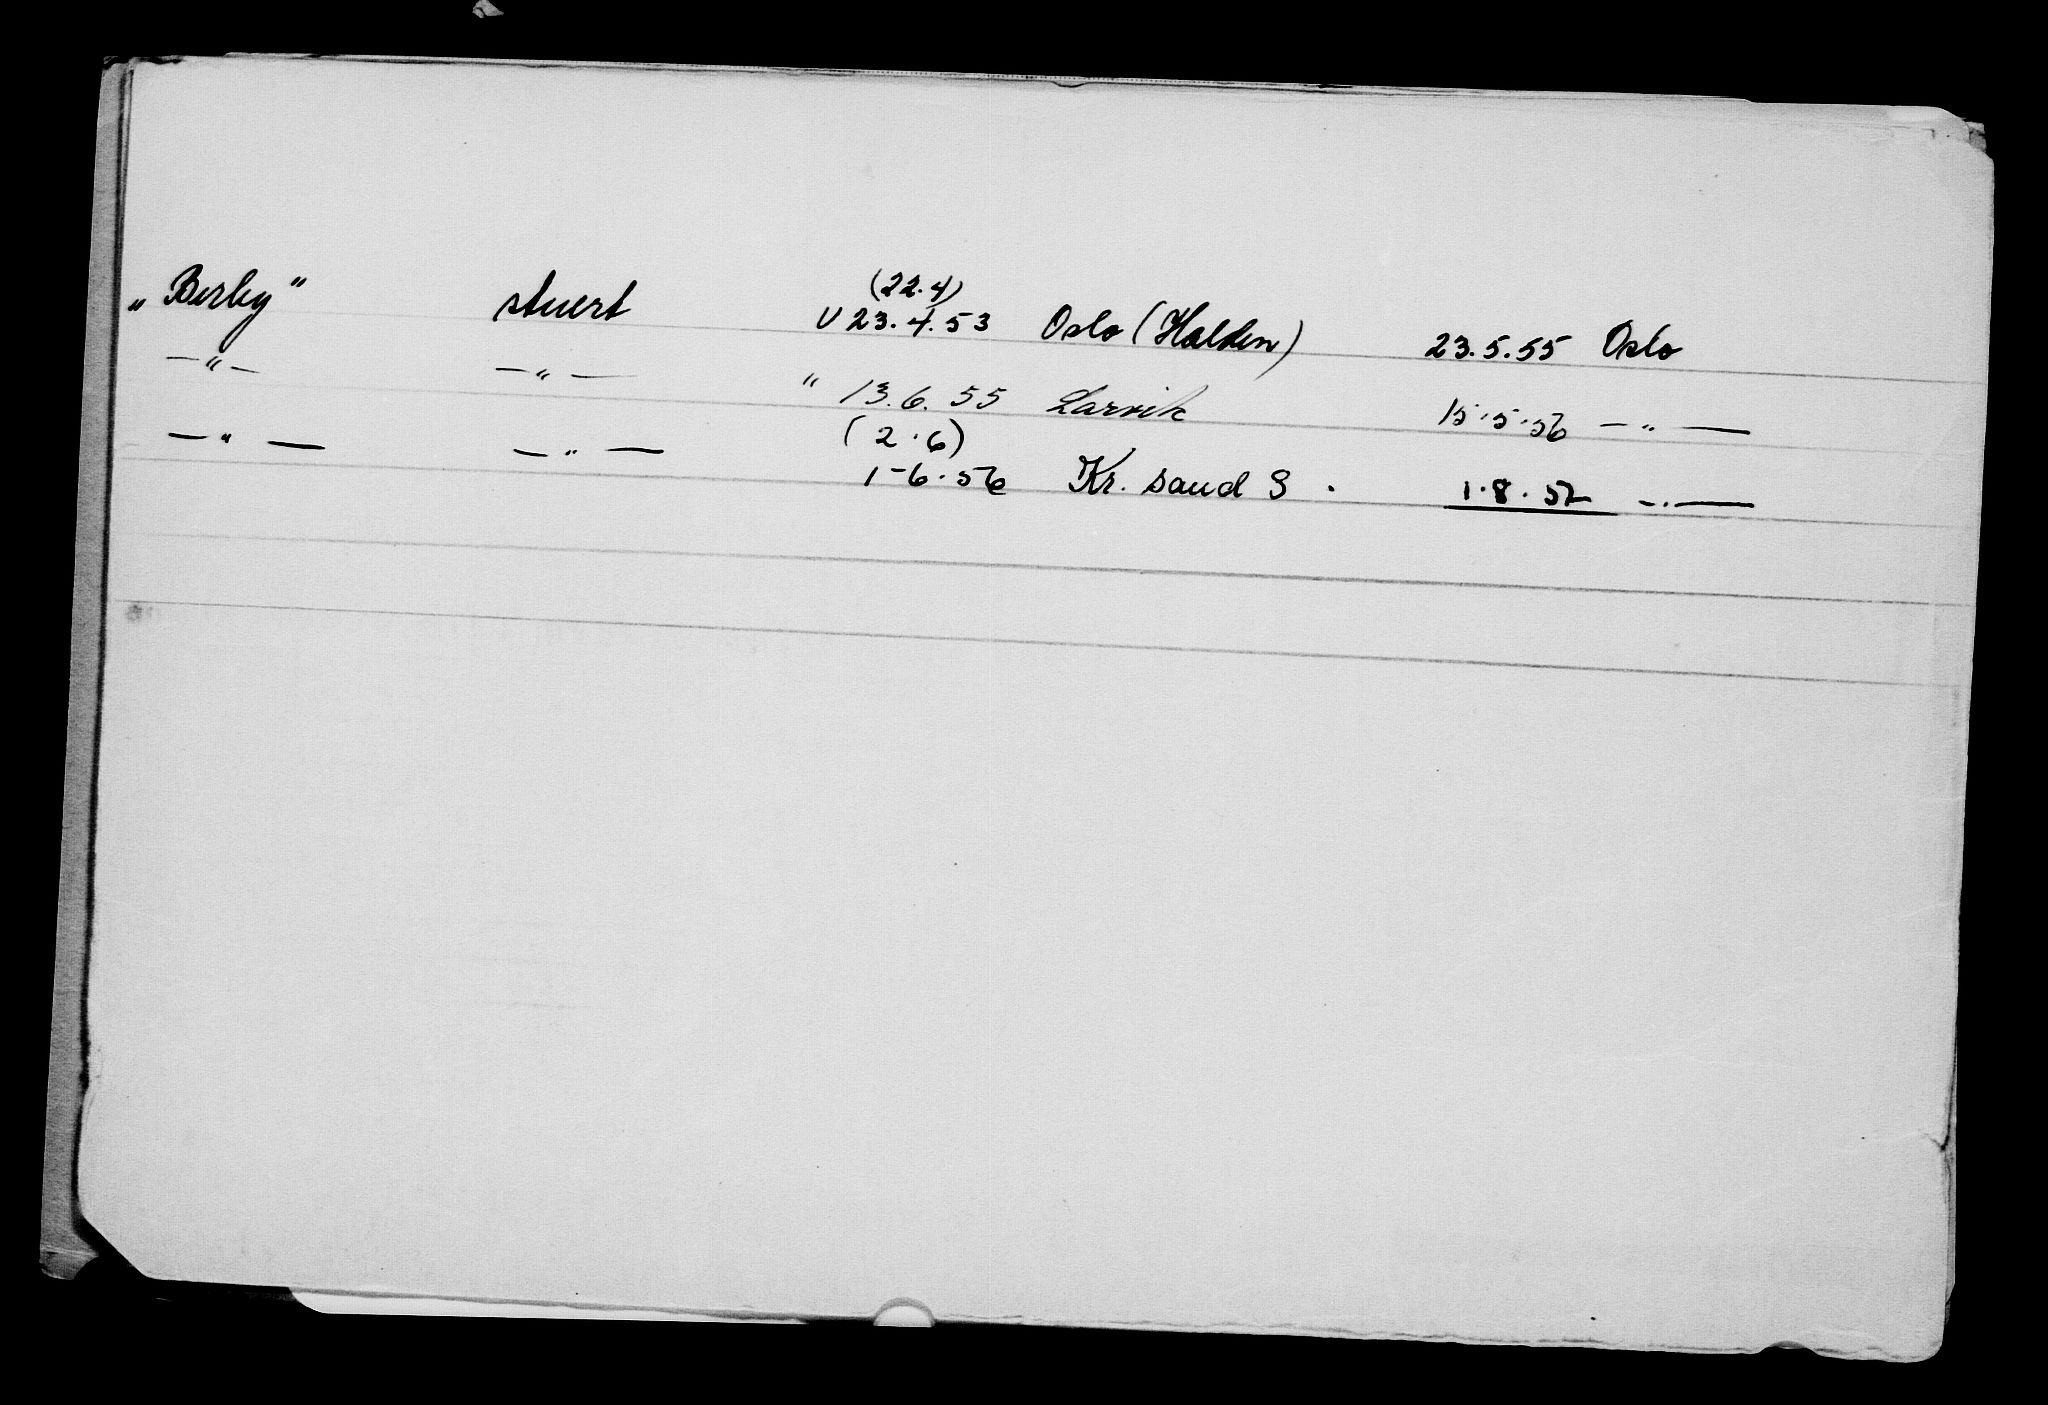 (22.4)
„Berby" stuert V 23.4.53 Oslo (Halden) 23.5.55 Oslo
—"— —"— " 13.6.55 Larvik 15.5.56 —"—
(2.6)
—"— —"— 1-6.56 Kr. sand S. 1.8.57 —"—